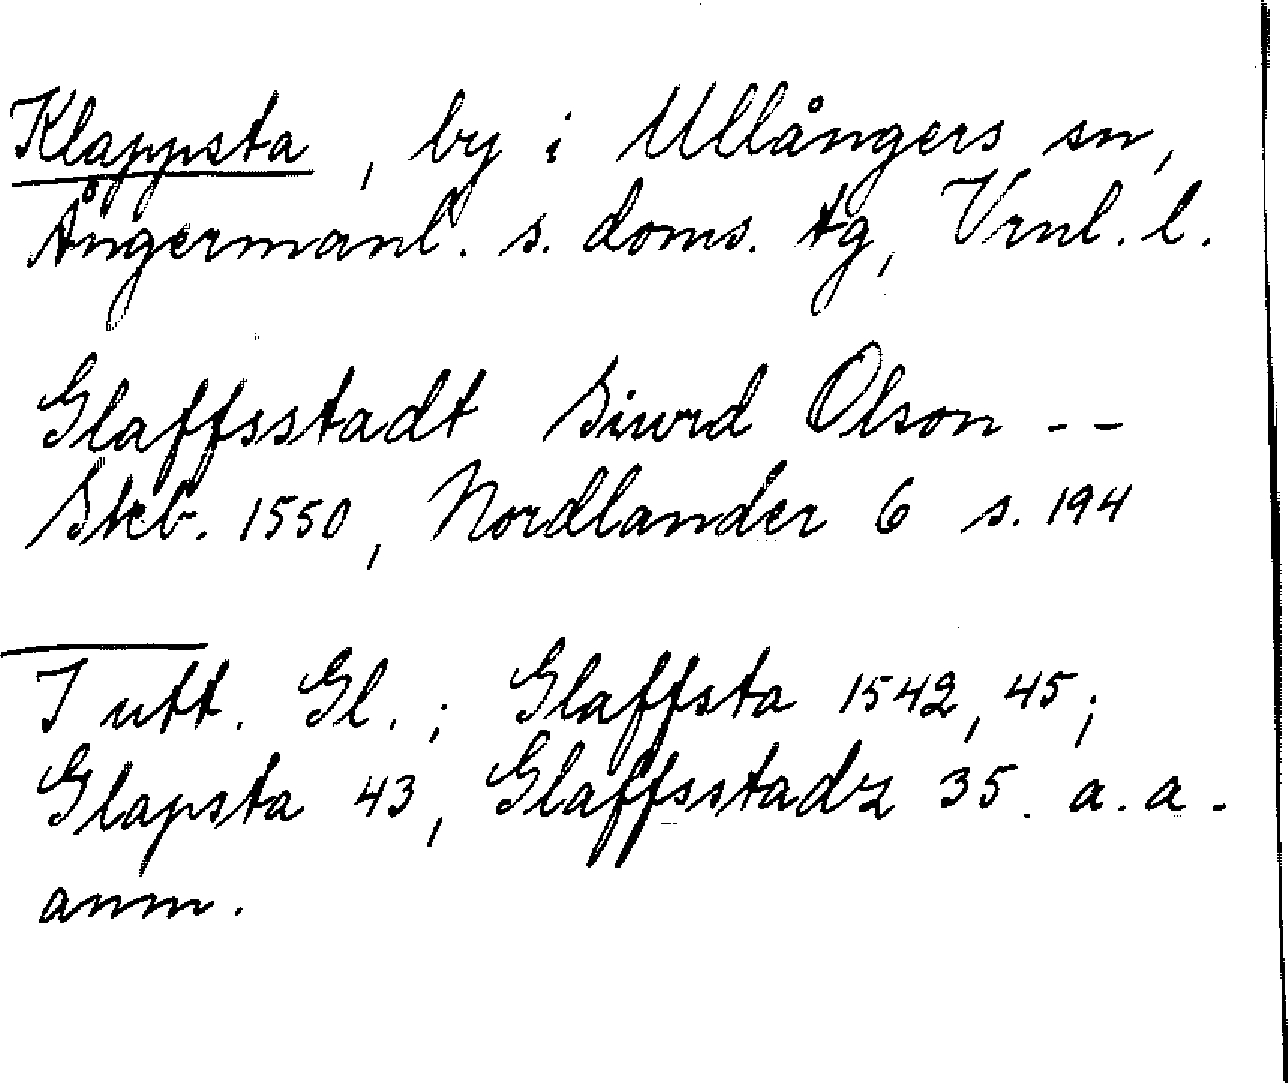 Klappsta, by i Ullångers sn,
Ångermanl. s. doms. tg, Vrnl. l.
Glaffsstadt Siwrd Olson - -
Skb. 1550, Nordlander 6 s. 194
I utt. Gl.; Glaffsta 1542, 45;
Glapsta 43, Glaffsstadz 35. a. a.
anm.